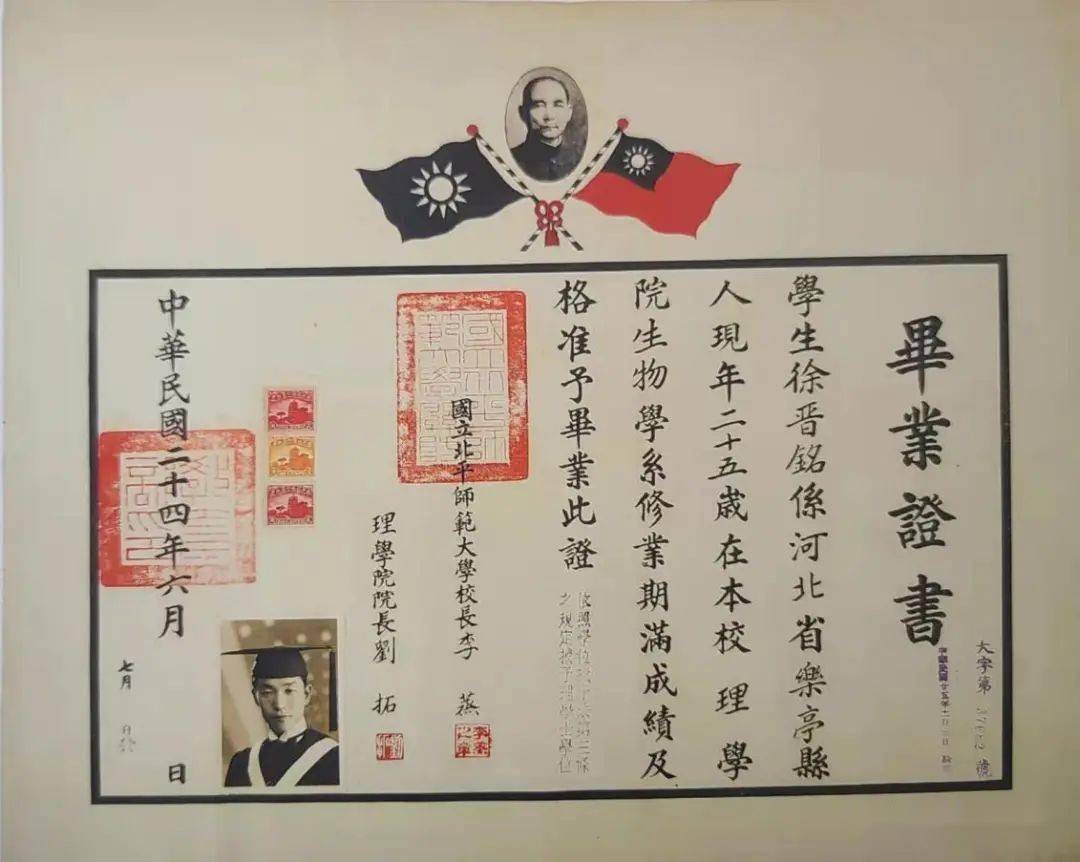 畢業證書
大字第
號
學生徐晋銘係河北省樂亭縣
人現年二十五歲在本校理學
院生物學系修業期滿成績及
格准予畢業此證
依照學位授予法第三條
之規定授予理學士學位
國立北平師範大學校長李蒸
李蒸之章
理學院院長劉拓
中華民國二十四年六月日
七月